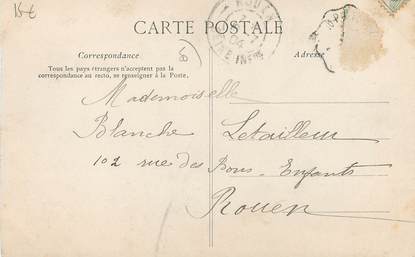 15€
CARTE POSTALE
ROUEN
04
INFRE
Correspondance
Adresse
Tous les pays étrangers n'acceptent pas la
correspondance au recto, se renseigner à la Poste.
Mademoiselle
Blanche Letailleur
102 rue des Bons-Enfants
Rouen